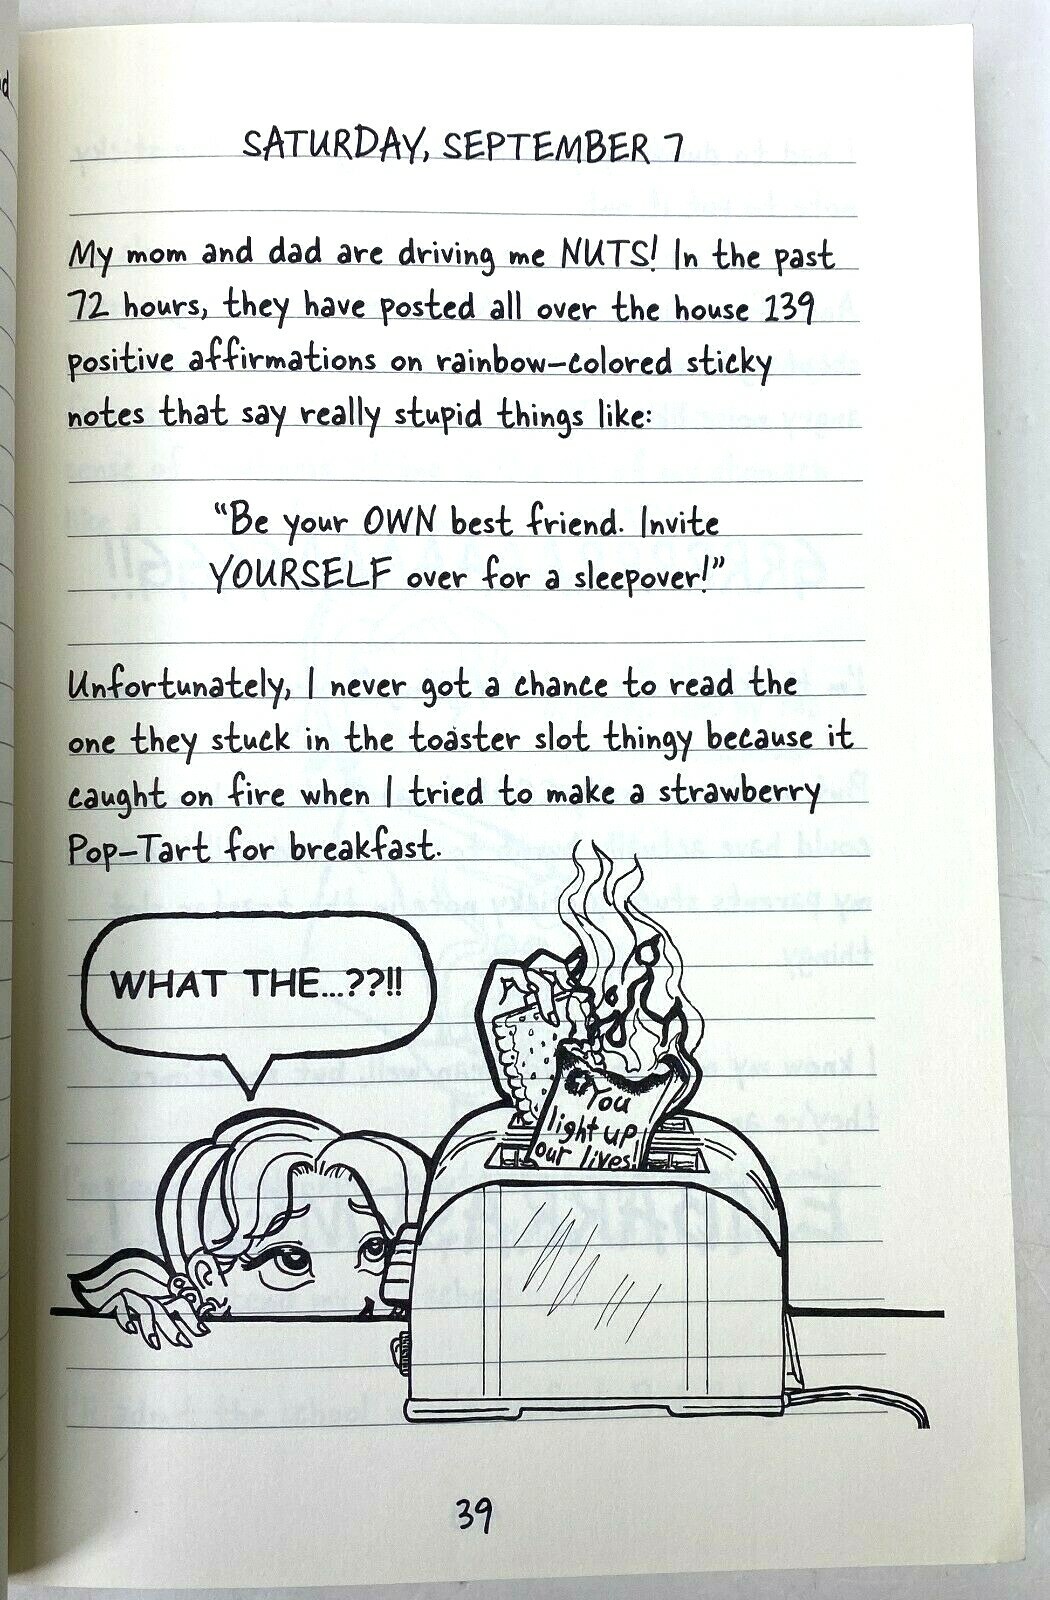 SATURDAY, SEPTEMBER 7
My mom and dad are driving me NUTS! In the past
72 hours, they have posted all over the house 139
positive affirmations on rainbow-colored sticky
notes that say really stupid things like:
"Be your OWN best friend. Invite
YOURSELF over for a sleepover!"
Unfortunately, I never got a chance to read the
one they stuck in the toaster slot thingy because it
caught on fire when I tried to make a strawberry
Pop-Tart for breakfast.
WHAT THE...??!!
You
light up
our lives!
39